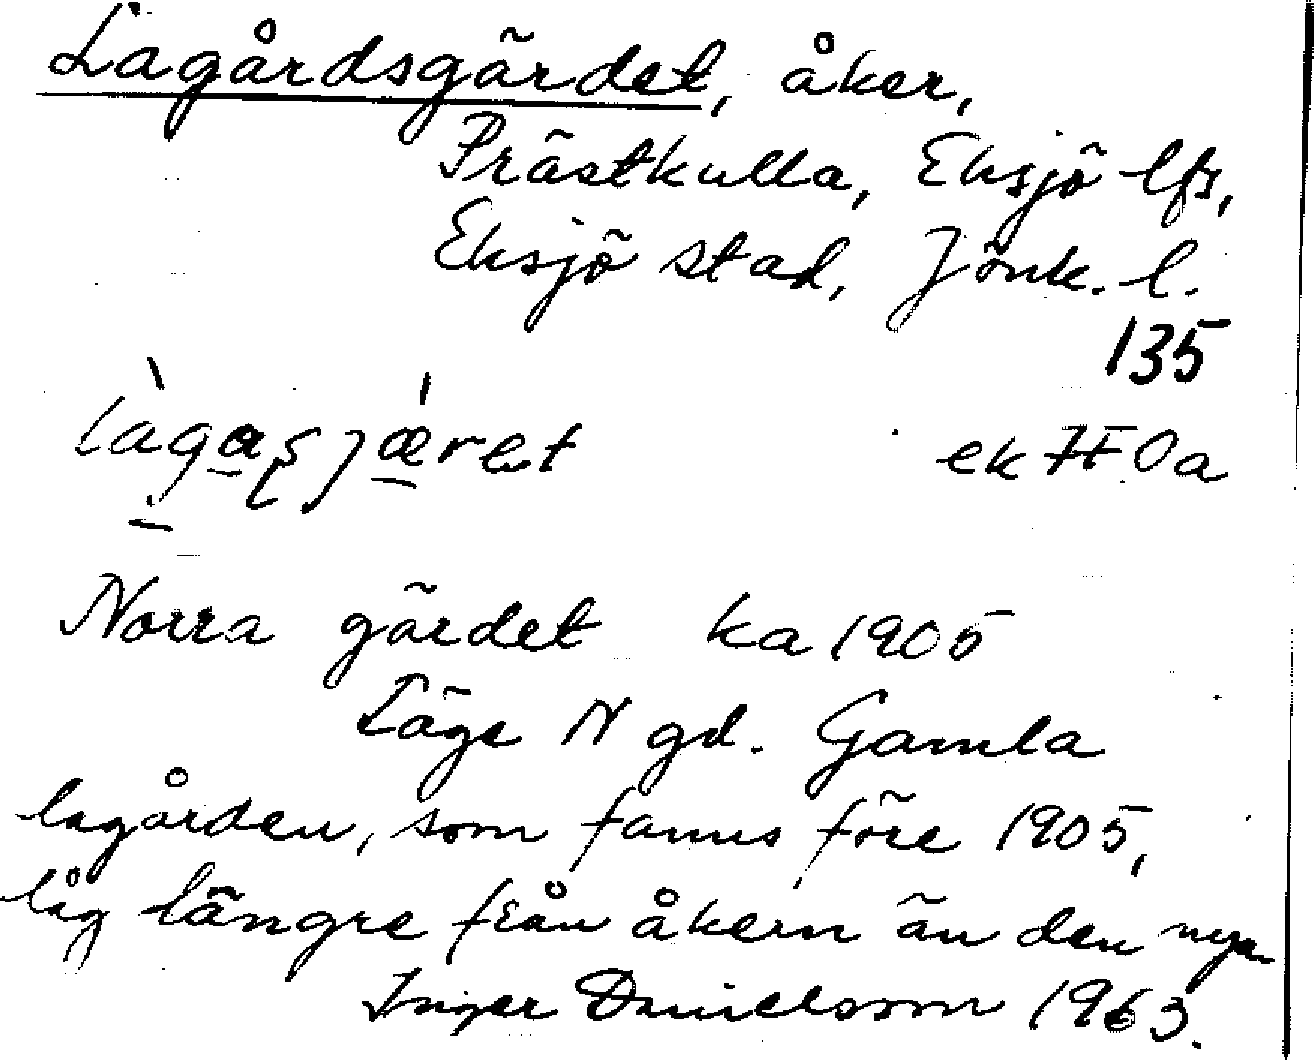 Lagårdsgärdet, åker,
Prästkulla, Eksjö lfs,
Eksjö stad, Jönk. l.
135
ek 7F0a
Norra gärdet ka 1905
Läge N gd. Gamla
lagården, som fanns före 1905,
låg längre från åkern än den nya.
Inger Danielsson 1963.